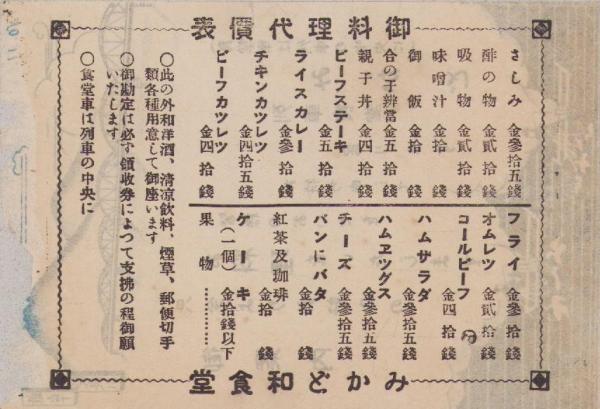 御料理代價表
さしみ 金參拾五錢
酢の物 金貳拾錢
吸物 金貳拾錢
味噌汁 金拾錢
御飯 金拾錢
合の子辨當 金五拾錢
親子丼 金四拾錢
ビーフステーキ 金五拾錢
ライスカレー 金參拾錢
チキンカツレツ 金四拾五錢
ビーフカツレツ 金四拾錢
フライ 金參拾錢
オムレツ 金貳拾錢
コールビーフ 金四拾錢
ハムサラダ 金參拾五錢
ハムエッグス 金參拾五錢
チーズ 金參拾五錢
パンにバタ 金拾錢
紅茶及珈琲 金拾錢
ケーキ(一個) 金拾錢以下
果物…………
○此の外和洋酒、清涼飲料、煙草、郵便切手
類各種用意して御座います
○御勘定は必ず領收券によつて支拂の程御願
いたします
○食堂車は列車の中央に
みかど和食堂